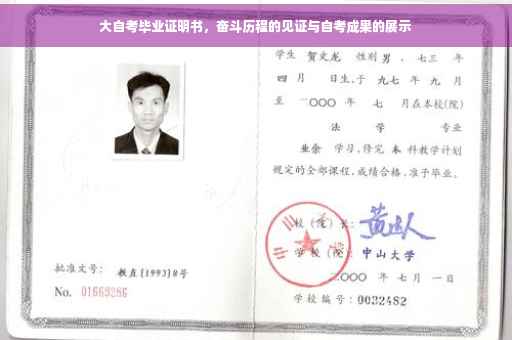 大自考毕业证明书，奋斗历程的见证与自考成果的展示
学生 贺文龙 性别 男，七三 年
四 月 日生，于 九七 年 九 月
至 二〇〇〇 年 七 月在本校(院)
法 学 专业
业余 学习，修完 本 科教学计划
规定的全部课程，成绩合格，准予毕业。
校（院）长：
学 校（院）：中山大学
二〇〇〇 年 七 月 一 日
学校编号：0032482
批准文号：教直(1993)8号
No. 01669286